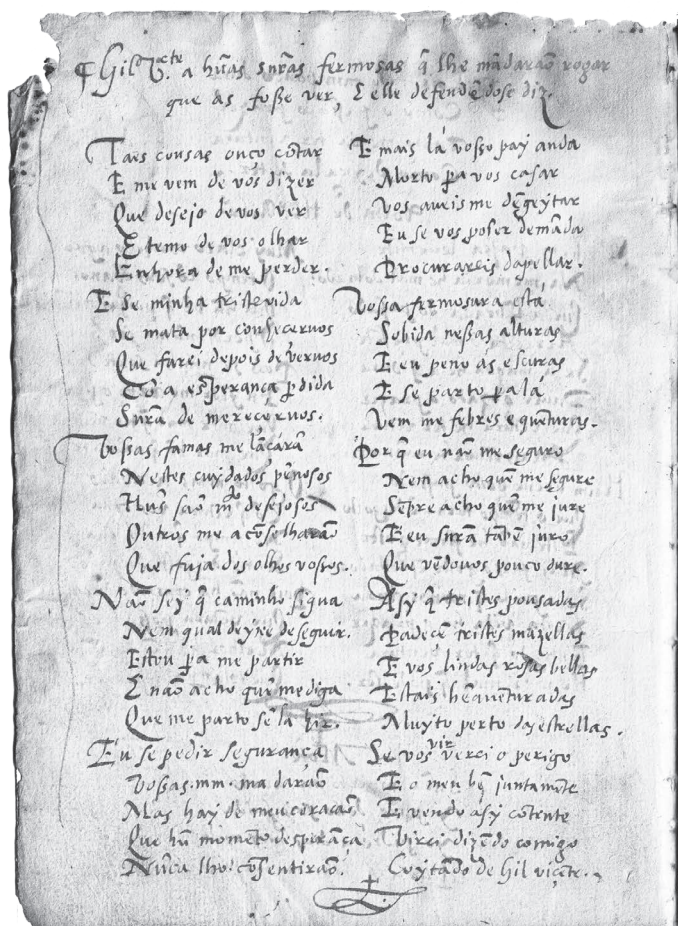 Gil Vcte a hũas snr̃as fermosas q̃ lhe mãdarão rogar
que as fosse ver, E elle defendẽdose diz.
Taes cousas ouço cõtar
E me vem de vos dizer
Que desejo de vos ver
E temo de vos olhar
Enhora de me perder.
E se minha triste vida
Se mata por conhecervos
Que farei depois de vervos
Cõ a esperança perdida
Snr̃a de merecervos.
Vossas famas me lãçarã
Nestes cuydados penosos
Hũs são mto desejosos
Outros me acõselharão
Que fuja dos olhos vossos.
Não sey q̃ caminho sigua
Nem qual deyxe de seguir.
Estou pa me partir
E não acho quẽ me diga
Que me parto sẽ la hir.
Eu se pedir segurança
Vossas .mm. ma darão
Mas hay de meu coração
Que hũ momẽto desperãça
Nũca lho cõsentirão.
E mais la vosso pay anda
Morto pa vos casar
Vos aveis me dẽgeytar
Eu se vos poser demãda
Procurareis dapellar.
Vossa fermosura està
Sobida nessas alturas
E eu peno às escuras
E se parto pa la
Vem me febres e quẽturas.
Por q̃ eu não me seguro
Nem acho quẽ me segure
Sẽpre acho quẽ me jure
E eu snr̃a tãbẽ juro
Que vẽdovos pouco dure.
Asy q̃ tristes pousadas
Padecẽ tristes mazellas
E vos lindas rosas bellas
Estais bẽaventuradas
Muyto perto das estrellas.
Se vos vir verei o perigo
E o meu bẽ juntamẽte
E vendo asy cõtente
Virei dizẽdo comigo
Coytado de Gil viçẽte.